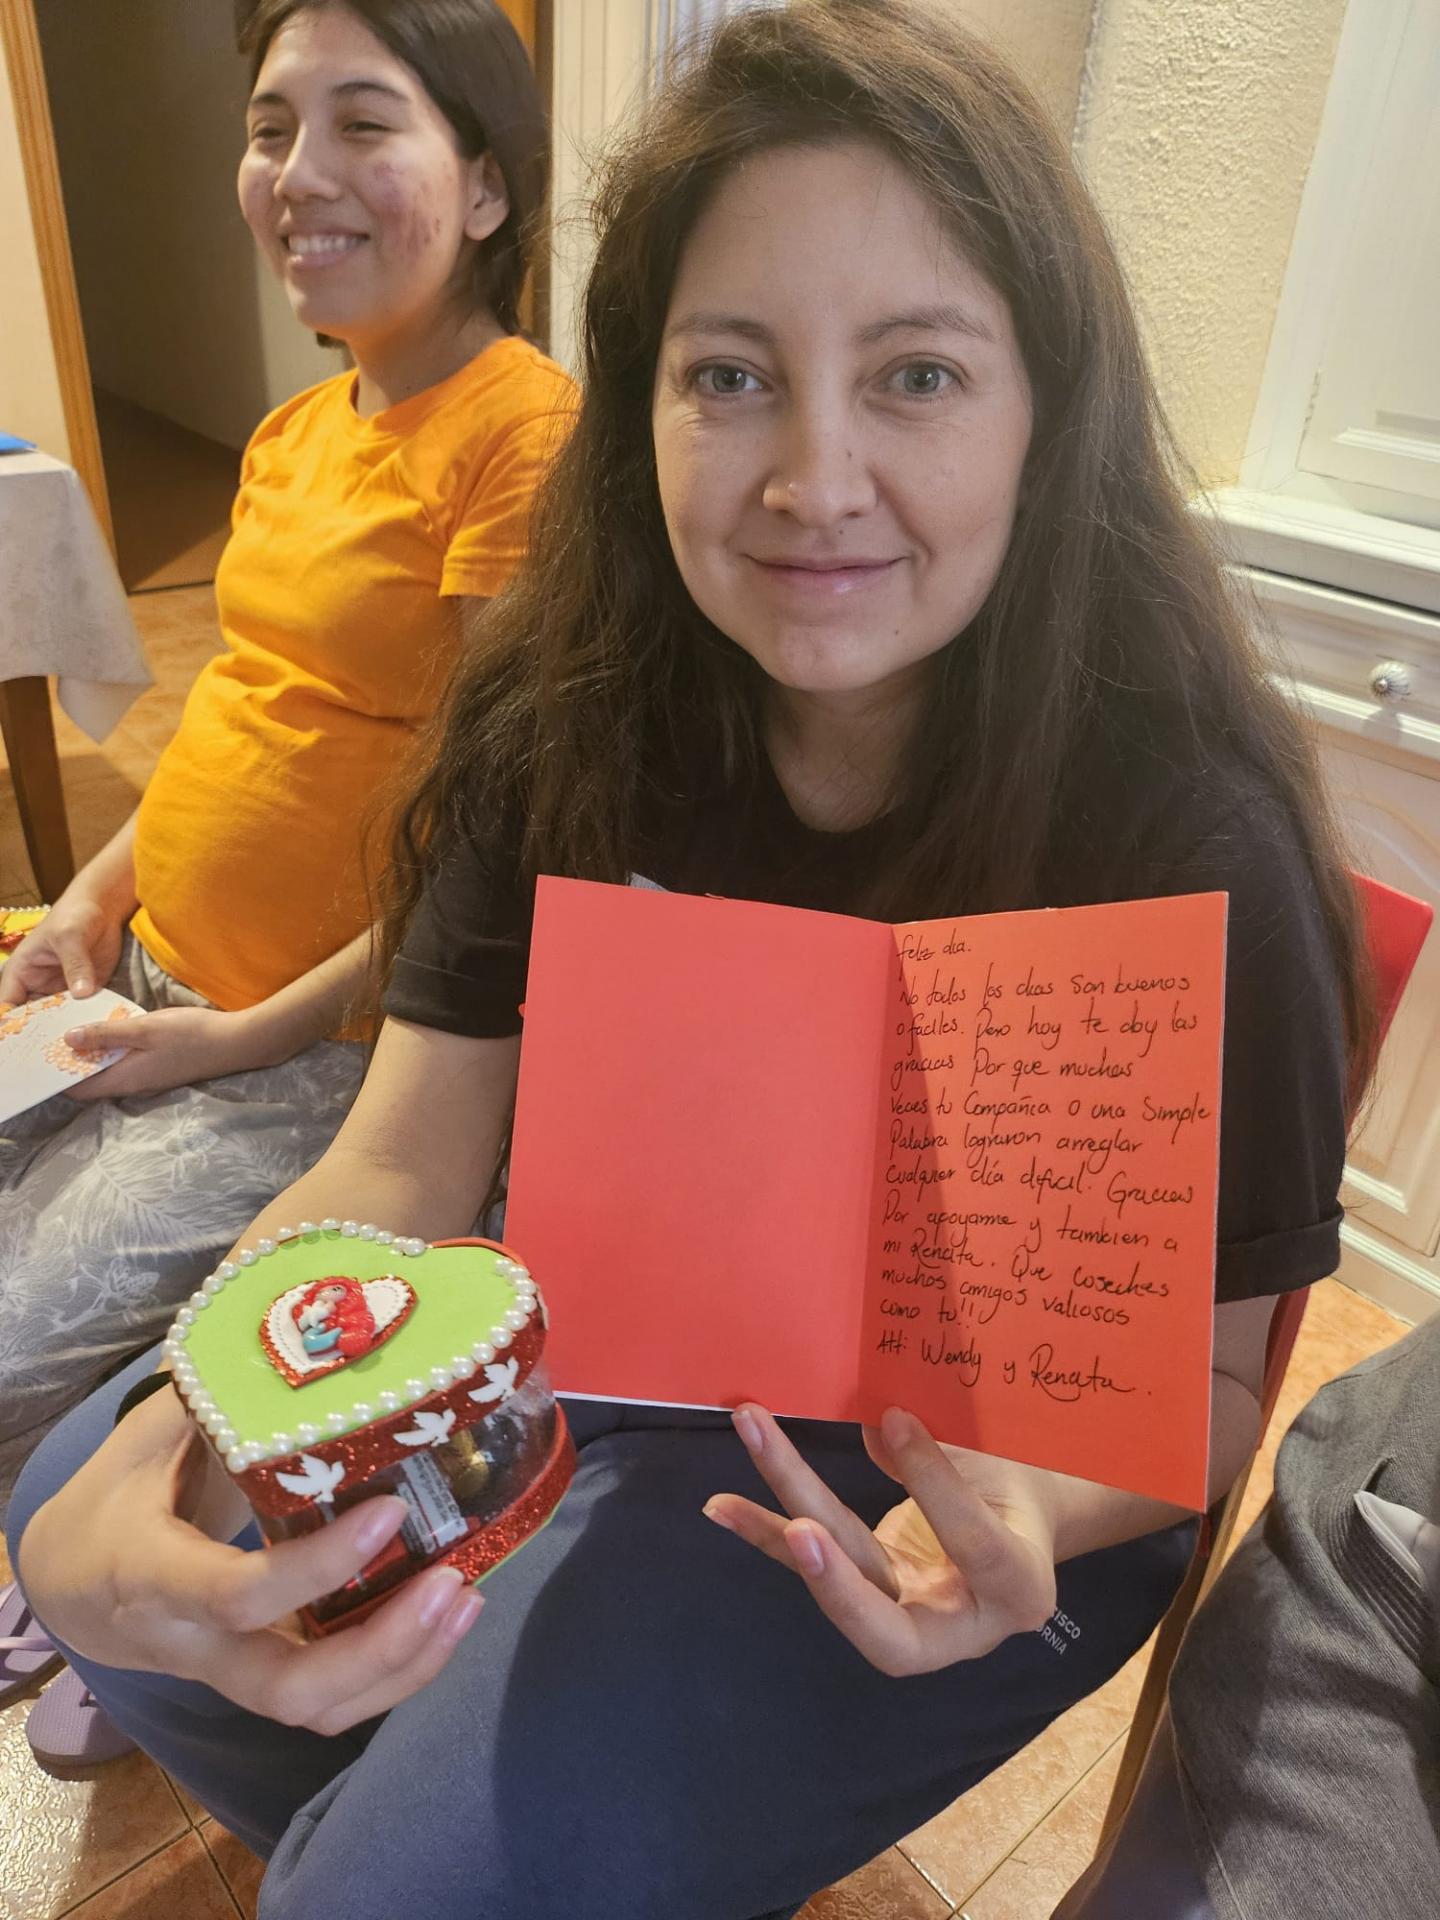 feliz dia.
No todos los dias son buenos
o faciles. Pero hoy te doy las
gracias Por que muchas
veces tu Compañia o una Simple
Palabra lograron arreglar
cualquier día dificil. Gracias
Por apoyarme y tambien a
mi Renata. Que coseches
muchos amigos valiosos
como tu!!
Att: Wendy y Renata.
ISCO
RNIA